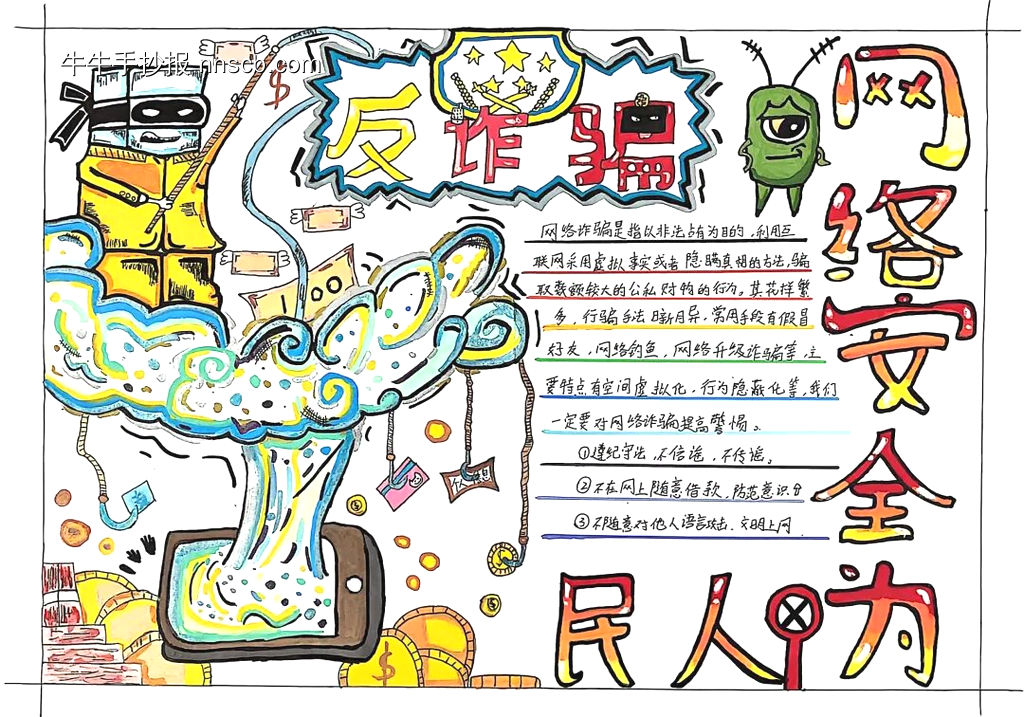 牛牛手抄报 nhscb.com
反诈骗
网络安全
为人民
网络诈骗是指以非法占有为目的，利用互
联网采用虚拟事实或者隐瞒真相的方法，骗
取数额较大的公私财物的行为。其花样繁
多，行骗手法日新月异，常用手段有假冒
好友，网络钓鱼，网络升级诈骗等，主
要特点有空间虚拟化，行为隐蔽化等，我们
一定要对网络诈骗提高警惕。
①遵纪守法，不信谣，不传谣。
②不在网上随意借款，防范意识分
③不随意对他人语言攻击，文明上网
100
个人信息
$
$